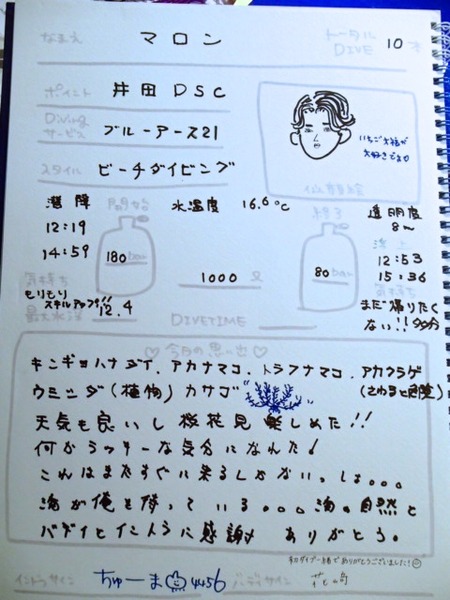 なまえ マロン トータル DIVE 10
ポイント 井田DSC
Diving サービス ブルーアース21
いちご大福が
大好きです♡
スタイル ビーチダイビング
似顔絵
潜降 開始 水温度 16.6℃ 終了 透明度
8m
12:19 浮上
12:53
14:59 180 bar 1000 80 bar 15:36
気持ち 気持ち
もりもり
スキルアップ!! まだ帰りたく
最大水深 12.4 DIVETIME ない!!
♡今日の思い出♡
キンギョハナダイ、アカナマコ、トラフナマコ、アカクラゲ
ウミシダ(植物) カサゴ (さわると危険)
天気も良いし 桜花見 楽しめた!!
何かラッキーな気分になれた!
これはまたすぐに来るしかないっしょ。。。
海が俺を待っている。。。海の自然と
バディとイントラに感謝 ありがとう。
初ダイブ一緒で ありがとうございました!
イントラサイン ちゅーま 4456 バディサイン